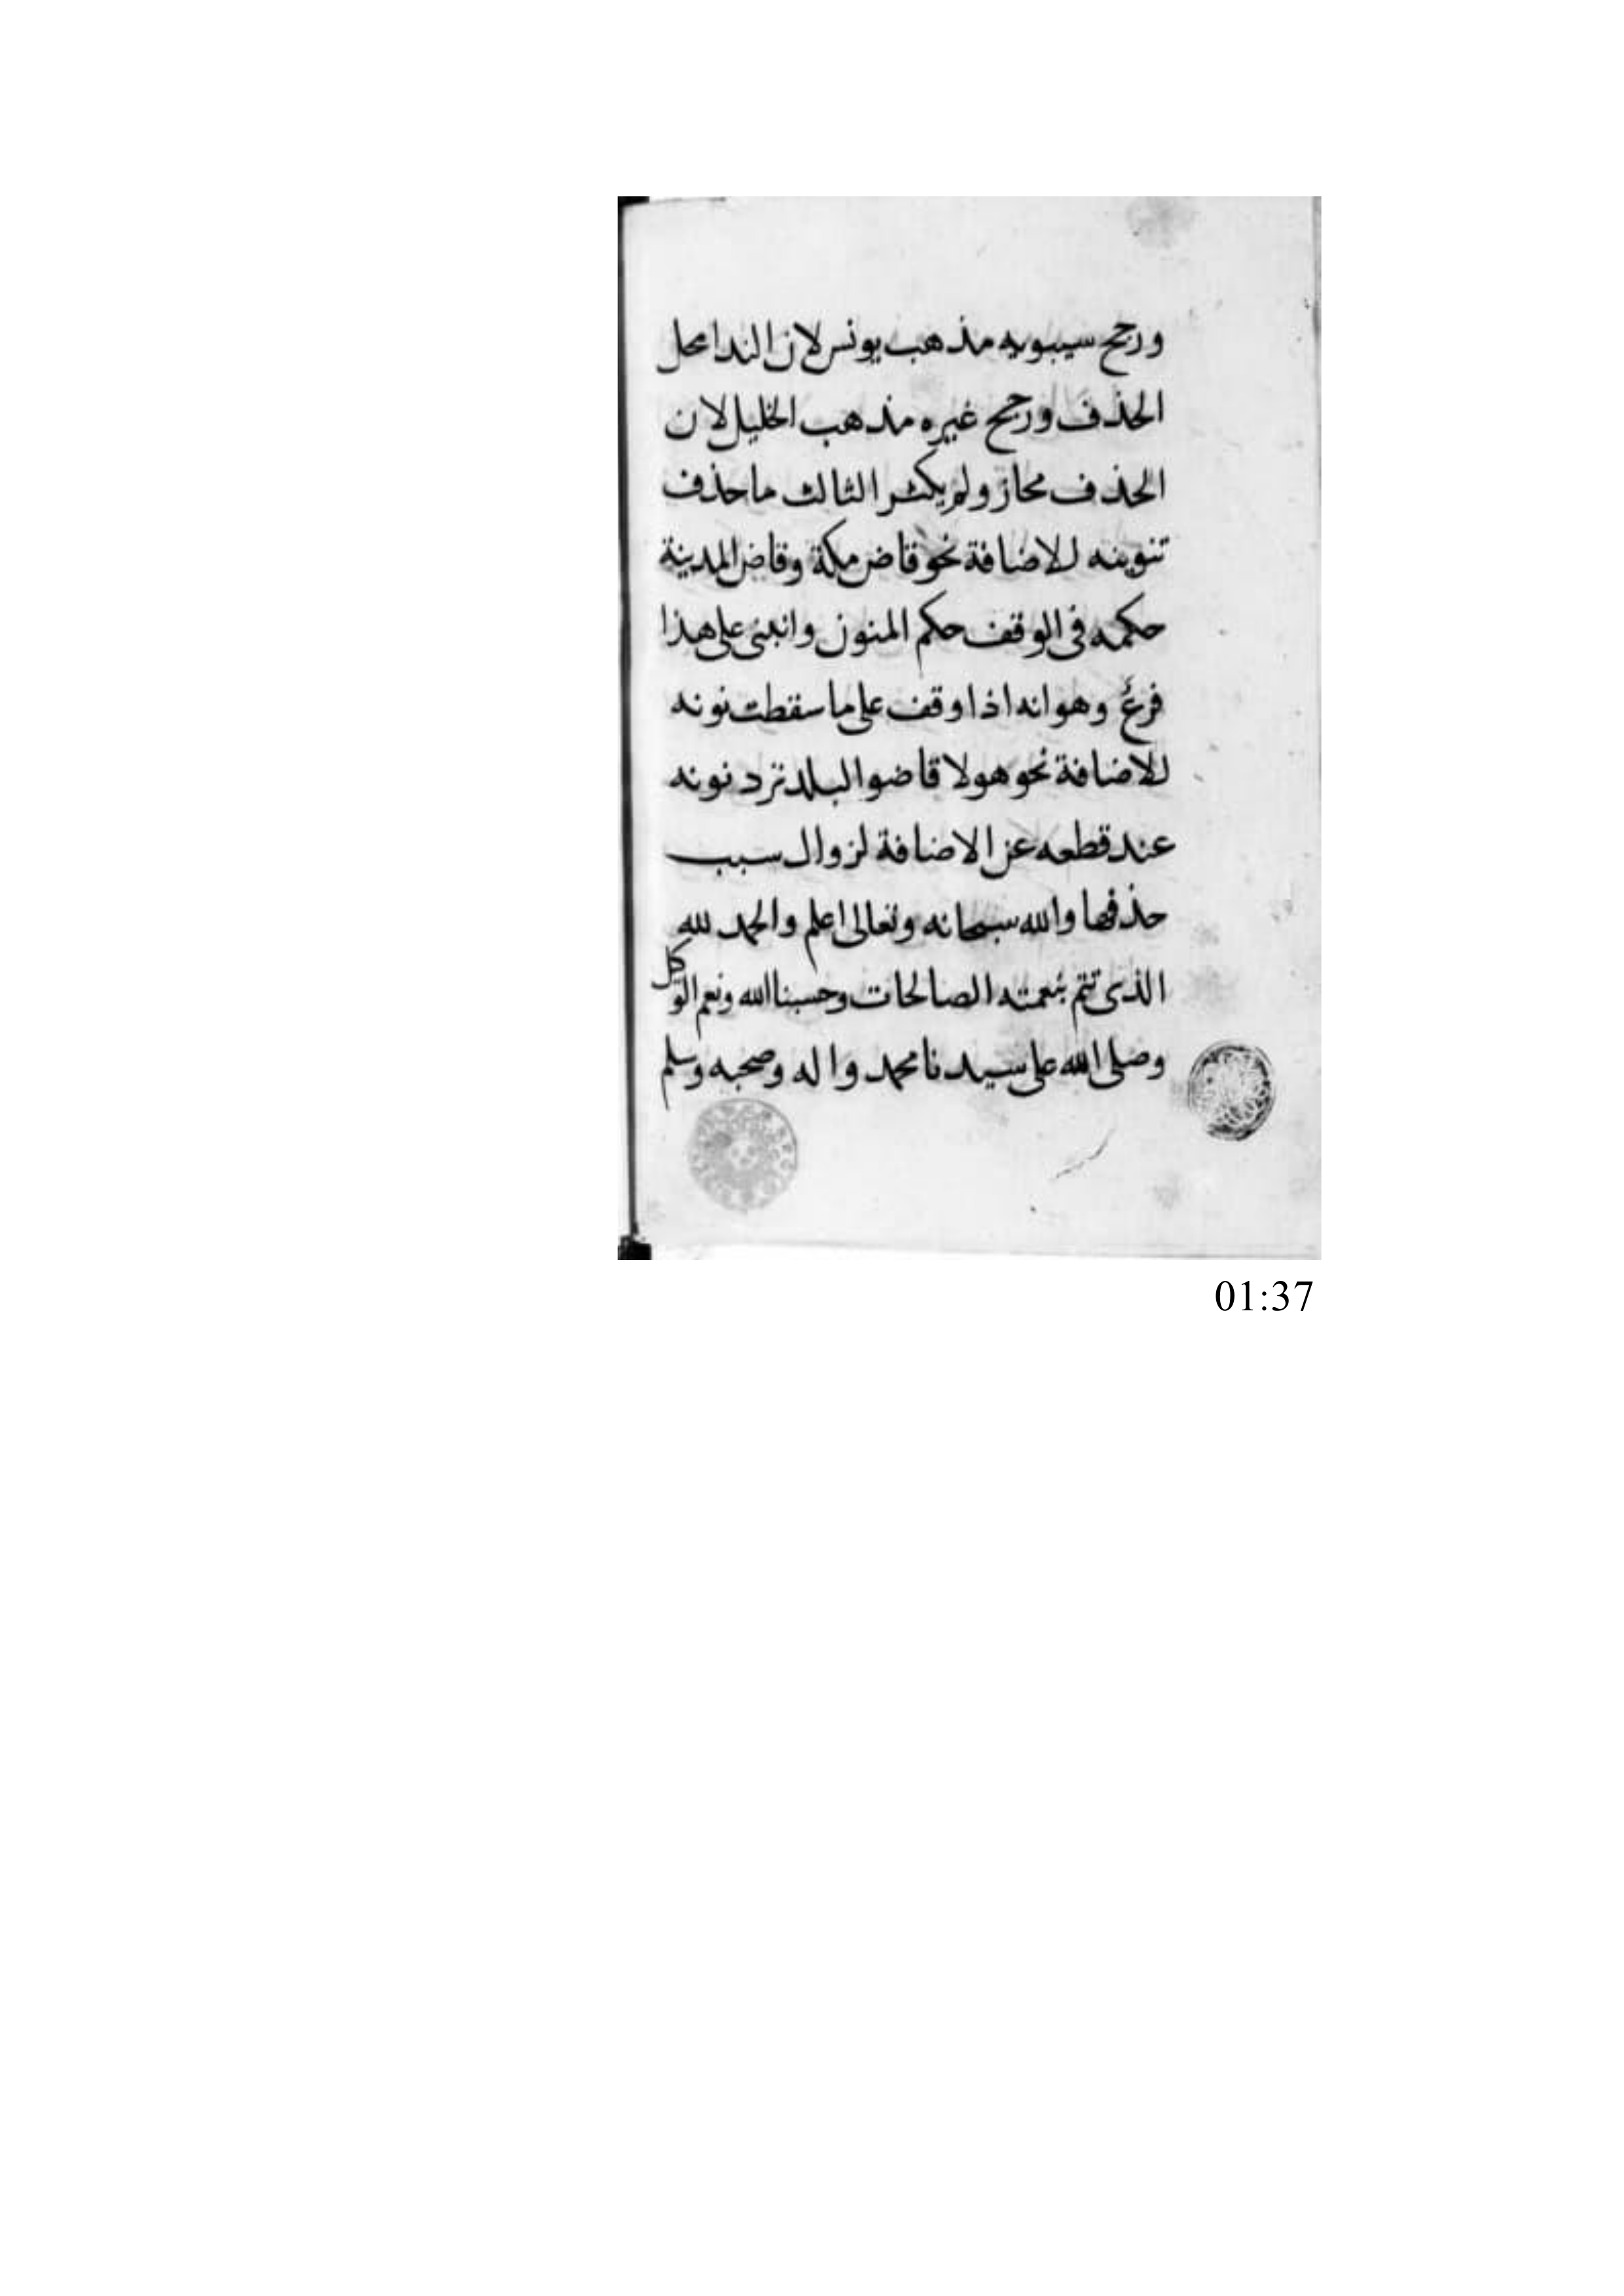 ورجح سيبويه مذهب يونس لان الندا محل
الحذف ورجح غيره مذهب الخليل لان
الحذف مجاز ولم يكثر الثالث ما حذف
تنوينه للاضافة نحو قاض مكة وقاض المدينة
حكمه فى الوقف حكم المنون وانبنى على هذا
فرع وهو انه اذا وقف على ما سقطت نونه
للاضافة نحو هولا قاضوا البلد ترد نونه
عند قطعه عن الاضافة لزوال سبب
حذفها والله سبحانه وتعالى اعلم والحمد لله
الذى تتم بنعمته الصالحات وحسبنا الله ونعم الوكل
وصلى الله على سيدنا محمد واله وصحبه وسلم
01:37